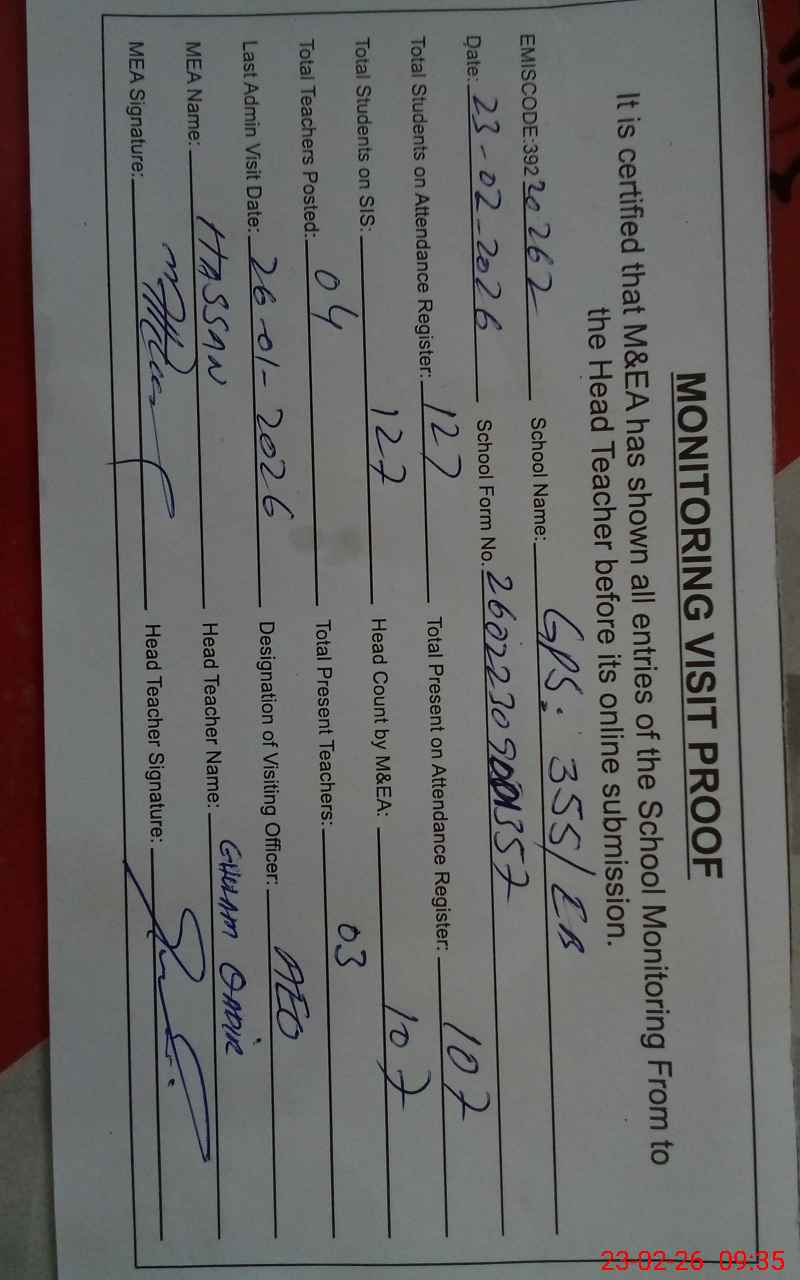 MONITORING VISIT PROOF
It is certified that M&EA has shown all entries of the School Monitoring From to
the Head Teacher before its online submission.
EMISCODE:392 20262 School Name: GPS. 355/EB
Date: 23-02-2026 School Form No. 26022309001357
Total Students on Attendance Register: 127 Total Present on Attendance Register: 107
Total Students on SIS: 127 Head Count by M&EA: 107
Total Teachers Posted: 04 Total Present Teachers: 03
Last Admin Visit Date: 26-01-2026 Designation of Visiting Officer: AEO
MEA Name: HASSAN Head Teacher Name: GHULAM QADIR
MEA Signature: Head Teacher Signature:
23-02-26 09:35